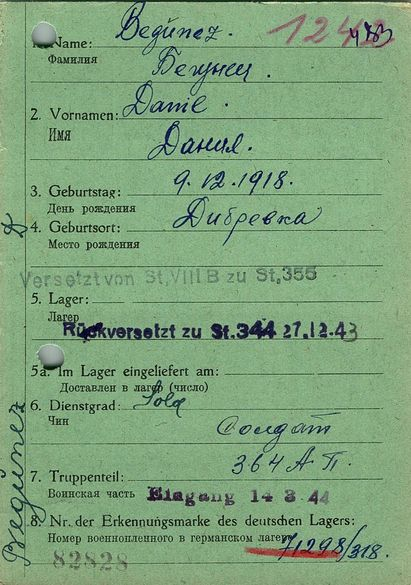 1242
483
1. Name: Begunez.
Фамилия Бегунец
2. Vornamen: Danie.
Имя Дания.
3. Geburtstag: 9.12.1918.
День рождения
4. Geburtsort: Дибревка
Место рождения
Versetzt von St. VIII B zu St. 355
5. Lager:
Лагер
Rückversetzt zu St. 344 27.12.43
5a. Im Lager eingeliefert am:
Доставлен в лагер (число)
6. Dienstgrad: Sold
Чин Солдат
364 А П.
7. Truppenteil:
Воинская часть Eingang 14 3 44
8. Nr. der Erkennungsmarke des deutschen Lagers:
Номер военнопленного в германском лагере 71298/318.
82828
Begunez D